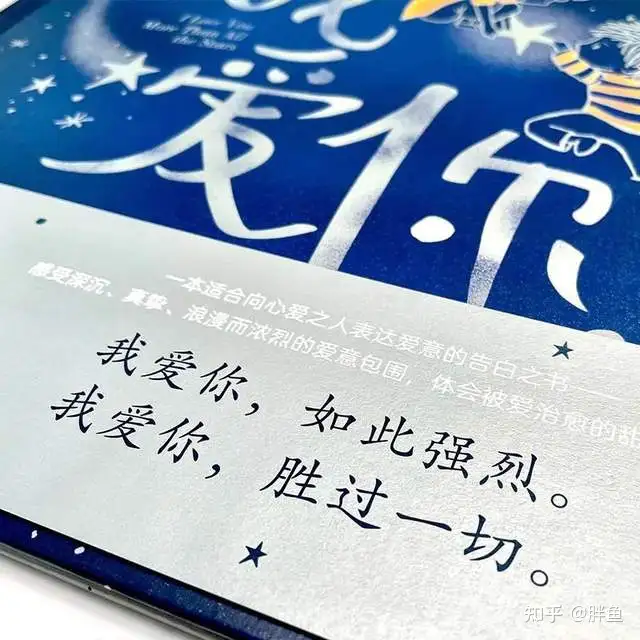 I Love You
More Than All
the Stars
爱你
一本适合向心爱之人表达爱意的告白之书——
感受深沉、真挚、浪漫而浓烈的爱意包围，体会被爱治愈的
我爱你，如此强烈。
我爱你，胜过一切。
知乎 @胖鱼